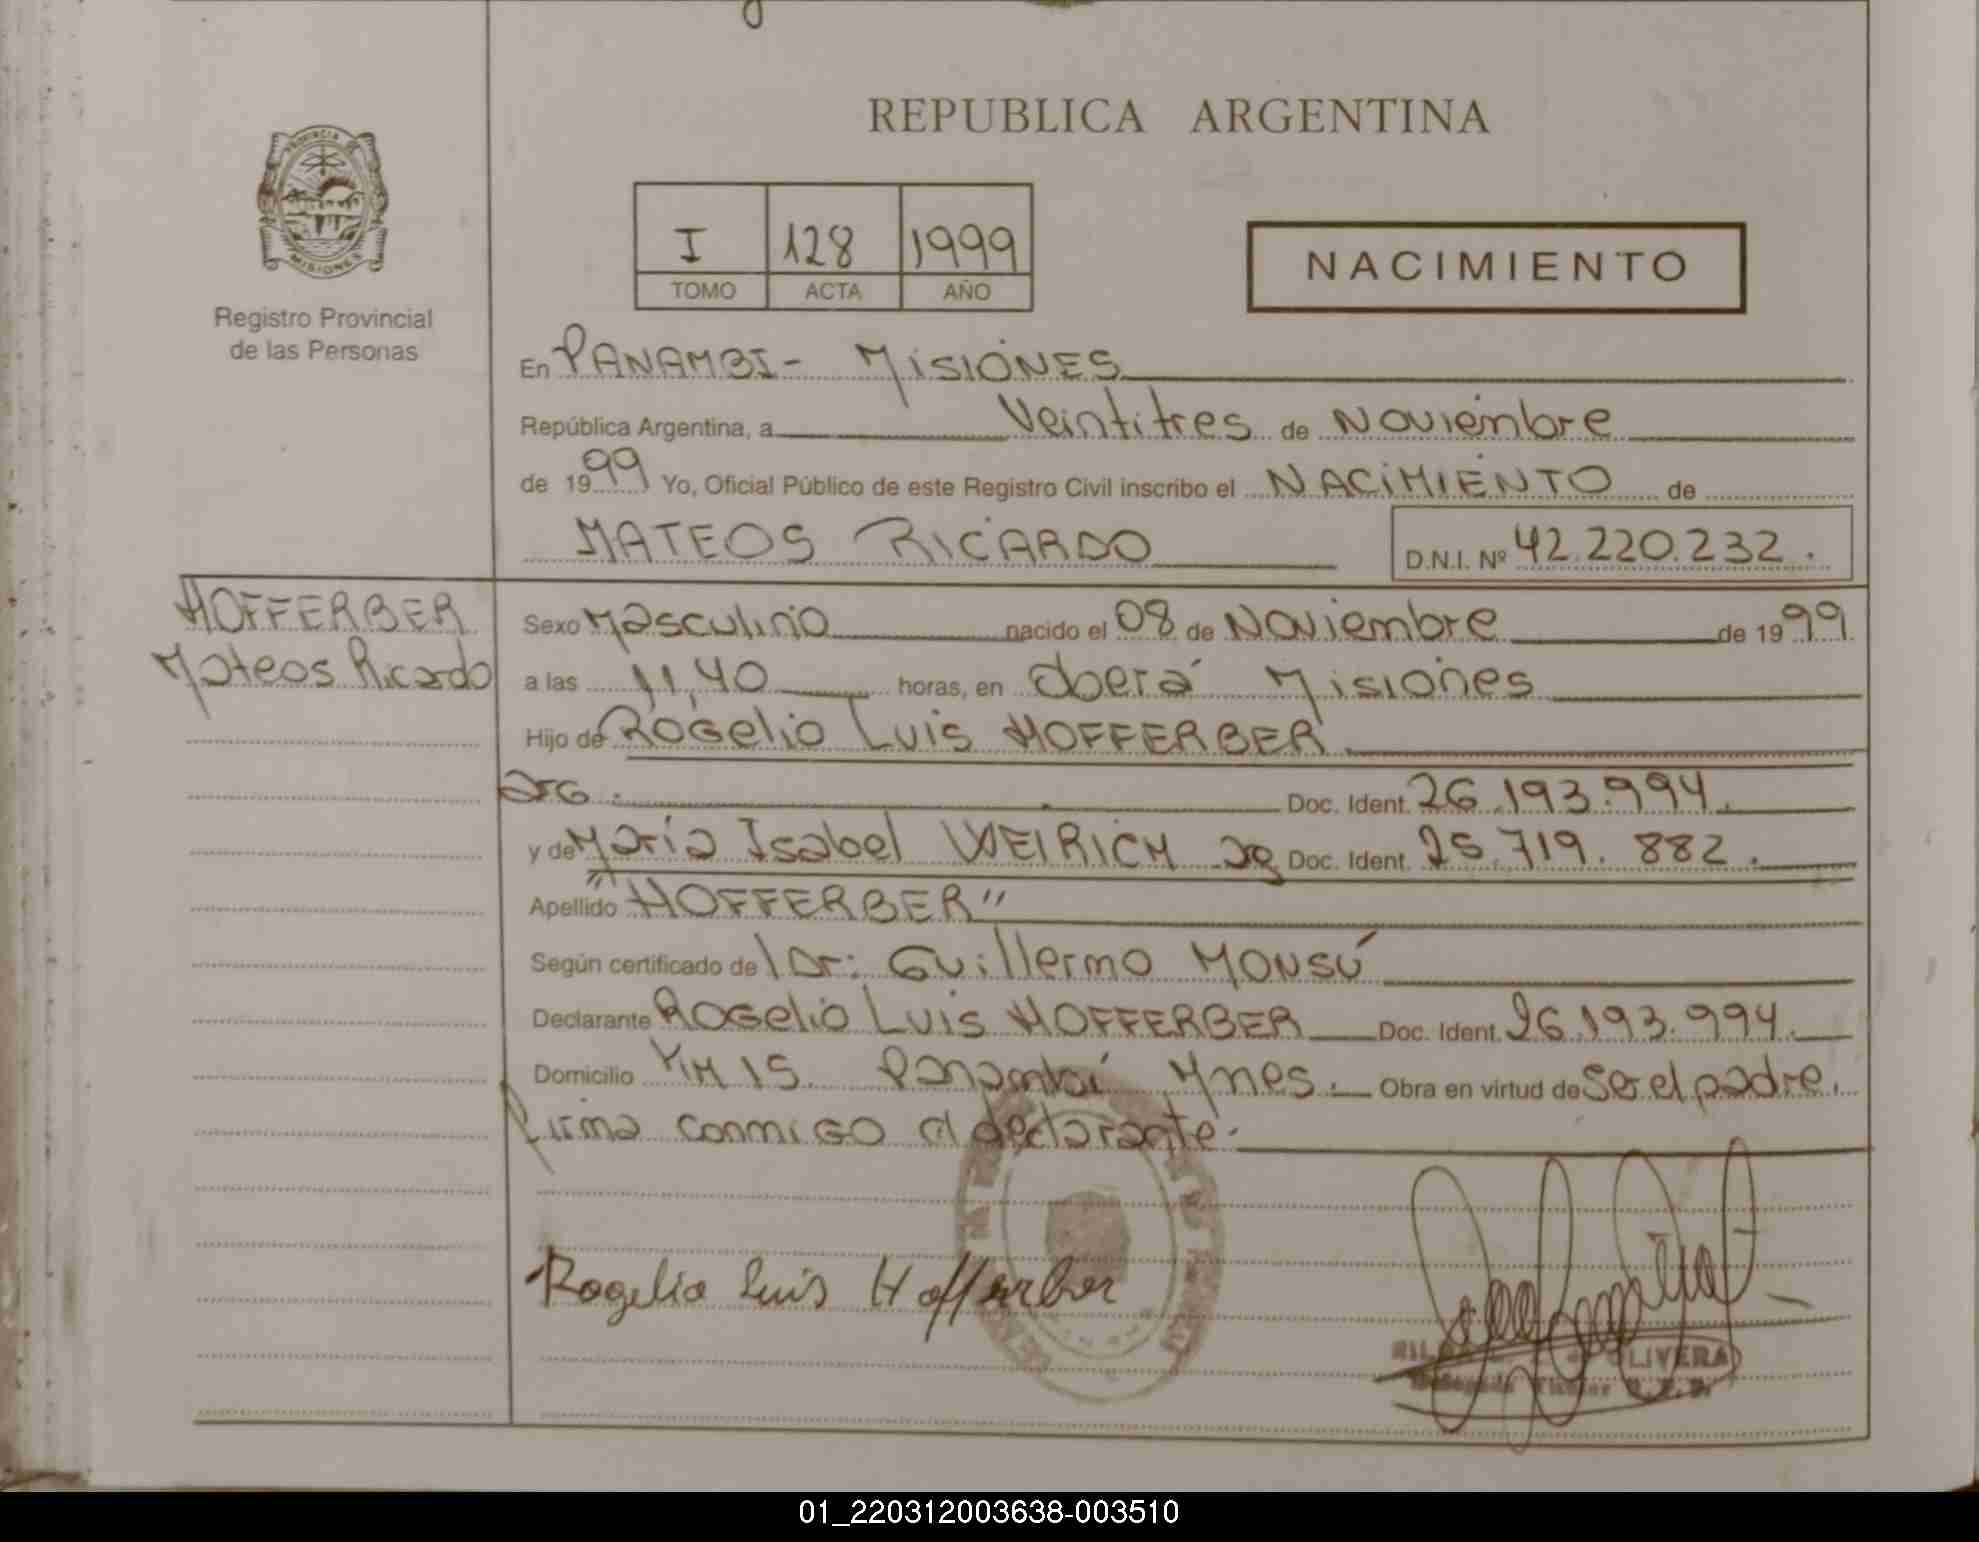 REPUBLICA ARGENTINA
PROVINCIA DE
MISIONES
Registro Provincial
de las Personas
I 128 1999
TOMO ACTA AÑO
NACIMIENTO
En PANAMBI - MISIONES
República Argentina, a Veintitres de Noviembre
de 1999 Yo, Oficial Público de este Registro Civil inscribo el NACIMIENTO de
MATEOS RICARDO D.N.I. Nº 42.220.232.
HOFFERBER
Mateos Ricardo
Sexo Masculino nacido el 08 de Noviembre de 1999
a las 11,40 horas, en Oberá Misiones
Hijo de Rogelio Luis HOFFERBER
arg. Doc. Ident. 26.193.994.
y de María Isabel WEIRICH arg Doc. Ident. 25.719.882.
Apellido "HOFFERBER"
Según certificado del Dr: Guillermo MONSÚ
Declarante ROGELIO LUIS HOFFERBER Doc. Ident. 26.193.994.
Domicilio KM 15. Panambí Mnes. Obra en virtud de Ser el padre.
firma conmigo el declarante.
Rogelio Luis Hofferber
OLIVERA
Titular R.P.P.
01_220312003638-003510